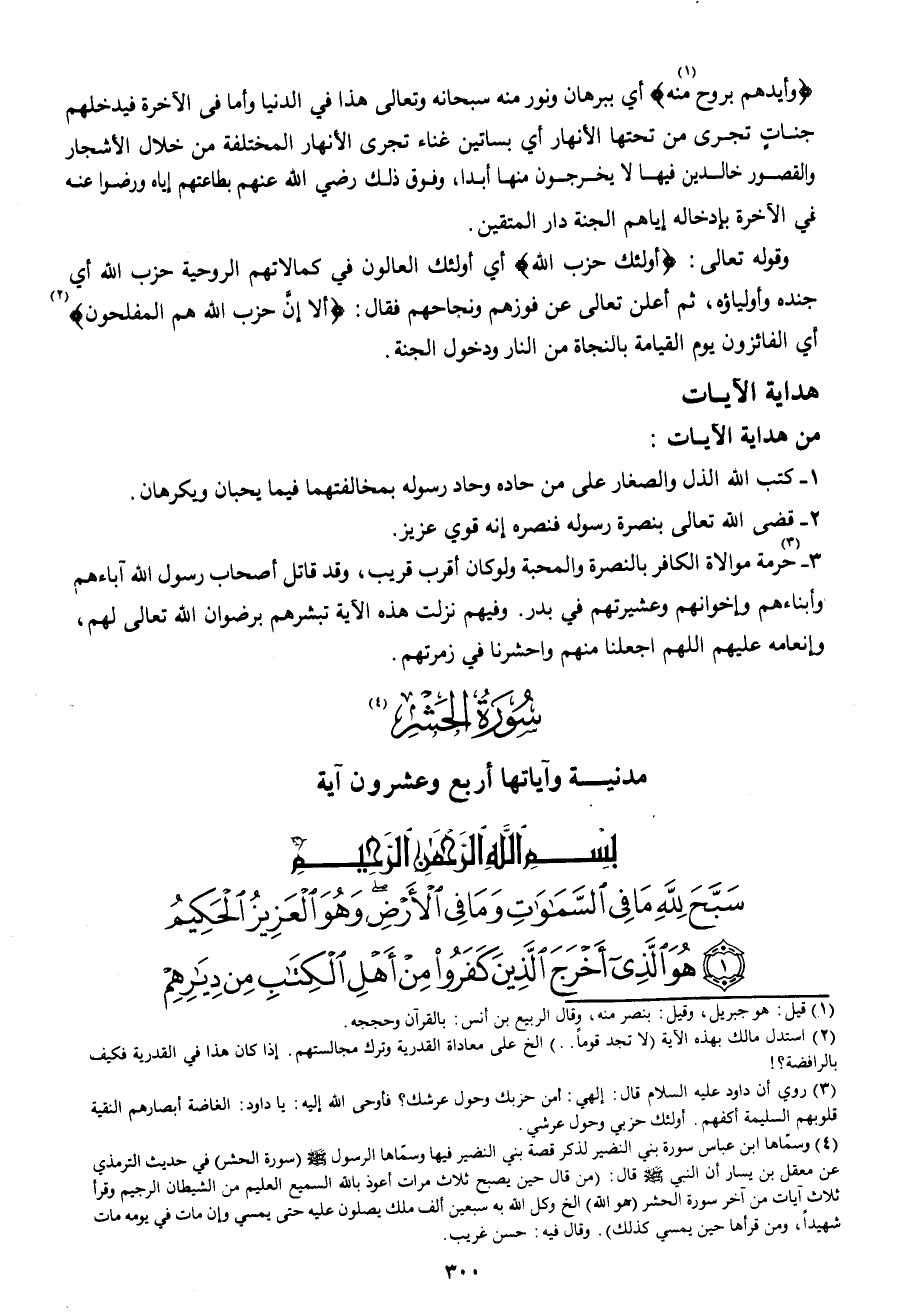 ﴿وأيدهم بروح منه﴾(١) أي ببرهان ونور منه سبحانه وتعالى هذا في الدنيا وأما فى الآخرة فيدخلهم
جناتٍ تجرى من تحتها الأنهار أي بساتين غناء تجرى الأنهار المختلفة من خلال الأشجار
والقصور خالدين فيها لا يخرجون منها أبدا، وفوق ذلك رضي الله عنهم بطاعتهم إياه ورضوا عنه
في الآخرة بإدخاله إياهم الجنة دار المتقين.
وقوله تعالى: ﴿أولئك حزب الله﴾ أي أولئك العالون في كمالاتهم الروحية حزب الله أي
جنده وأولياؤه، ثم أعلن تعالى عن فوزهم ونجاحهم فقال: ﴿ألا إنَّ حزب الله هم المفلحون﴾(٢)
أي الفائزون يوم القيامة بالنجاة من النار ودخول الجنة.
هداية الآيات
من هداية الآيات :
١ـ كتب الله الذل والصغار على من حاده وحاد رسوله بمخالفتهما فيما يحبان ويكرهان.
٢ـ قضى الله تعالى بنصرة رسوله فنصره إنه قوي عزيز.
٣ـ حرمة(٣) موالاة الكافر بالنصرة والمحبة ولوكان أقرب قريب، وقد قاتل أصحاب رسول الله آباءهم
وأبناءهم وإخوانهم وعشيرتهم في بدر. وفيهم نزلت هذه الآية تبشرهم برضوان الله تعالى لهم،
وإنعامه عليهم اللهم اجعلنا منهم واحشرنا في زمرتهم.
سُورَةُ الحَشْرِ (٤)
مدنية وآياتها أربع وعشرون آية
بِسْمِ اللَّهِ الرَّحْمَٰنِ الرَّحِيمِ
سَبَّحَ لِلَّهِ مَا فِي ٱلسَّمَٰوَٰتِ وَمَا فِي ٱلْأَرْضِۖ وَهُوَ ٱلْعَزِيزُ ٱلْحَكِيمُ
١ هُوَ ٱلَّذِىٓ أَخْرَجَ ٱلَّذِينَ كَفَرُوا۟ مِنْ أَهْلِ ٱلْكِتَٰبِ مِن دِيَٰرِهِمْ
(١) قيل: هو جبريل، وقيل: بنصر منه، وقال الربيع بن أنس: بالقرآن وحججه.
(٢) استدل مالك بهذه الآية (لا تجد قوماً..) الخ على معاداة القدرية وترك مجالستهم. إذا كان هذا في القدرية فكيف
بالرافضة؟!
(٣) روي أن داود عليه السلام قال: إلهي: أمن حزبك وحول عرشك؟ فأوحى الله إليه: يا داود: الغاضة أبصارهم النقية
قلوبهم السليمة أكفهم. أولئك حزبي وحول عرشي.
(٤) وسمّاها ابن عباس سورة بني النضير لذكر قصة بني النضير فيها وسمّاها الرسول ﷺ (سورة الحشر) في حديث الترمذي
عن معقل بن يسار أن النبي ﷺ قال: (من قال حين يصبح ثلاث مرات أعوذ بالله السميع العليم من الشيطان الرجيم وقرأ
ثلاث آيات من آخر سورة الحشر (هو الله) الخ وكل الله به سبعين ألف ملك يصلون عليه حتى يمسي وإن مات في يومه مات
شهيداً، ومن قرأها حين يمسي كذلك). وقال فيه: حسن غريب.
٣٠٠